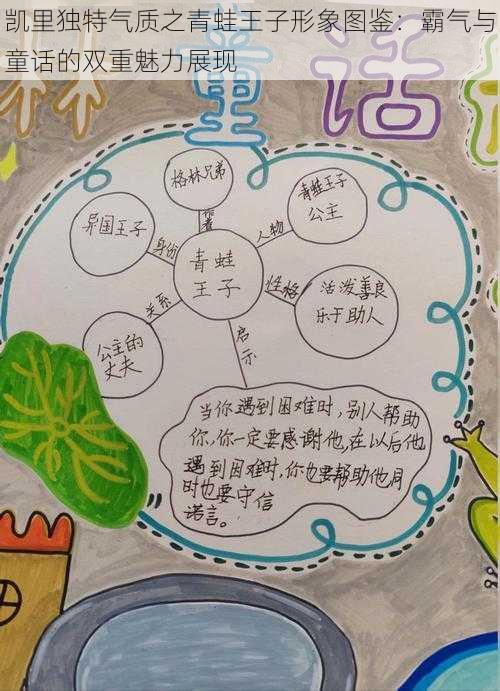 凯里独特气质之青蛙王子形象图鉴：霸气与
童话的双重魅力展现
童话
格林兄弟
作者
异国王子
身份
青蛙王子
公主
人物
青蛙
王子
性格
活泼善良
乐于助人
关系
公主的
丈夫
启
示
当你遇到困难时，别人帮助
你，你一定要感谢他，在以后他
遇到困难时，你也要帮助他同
时也要守信
诺言。